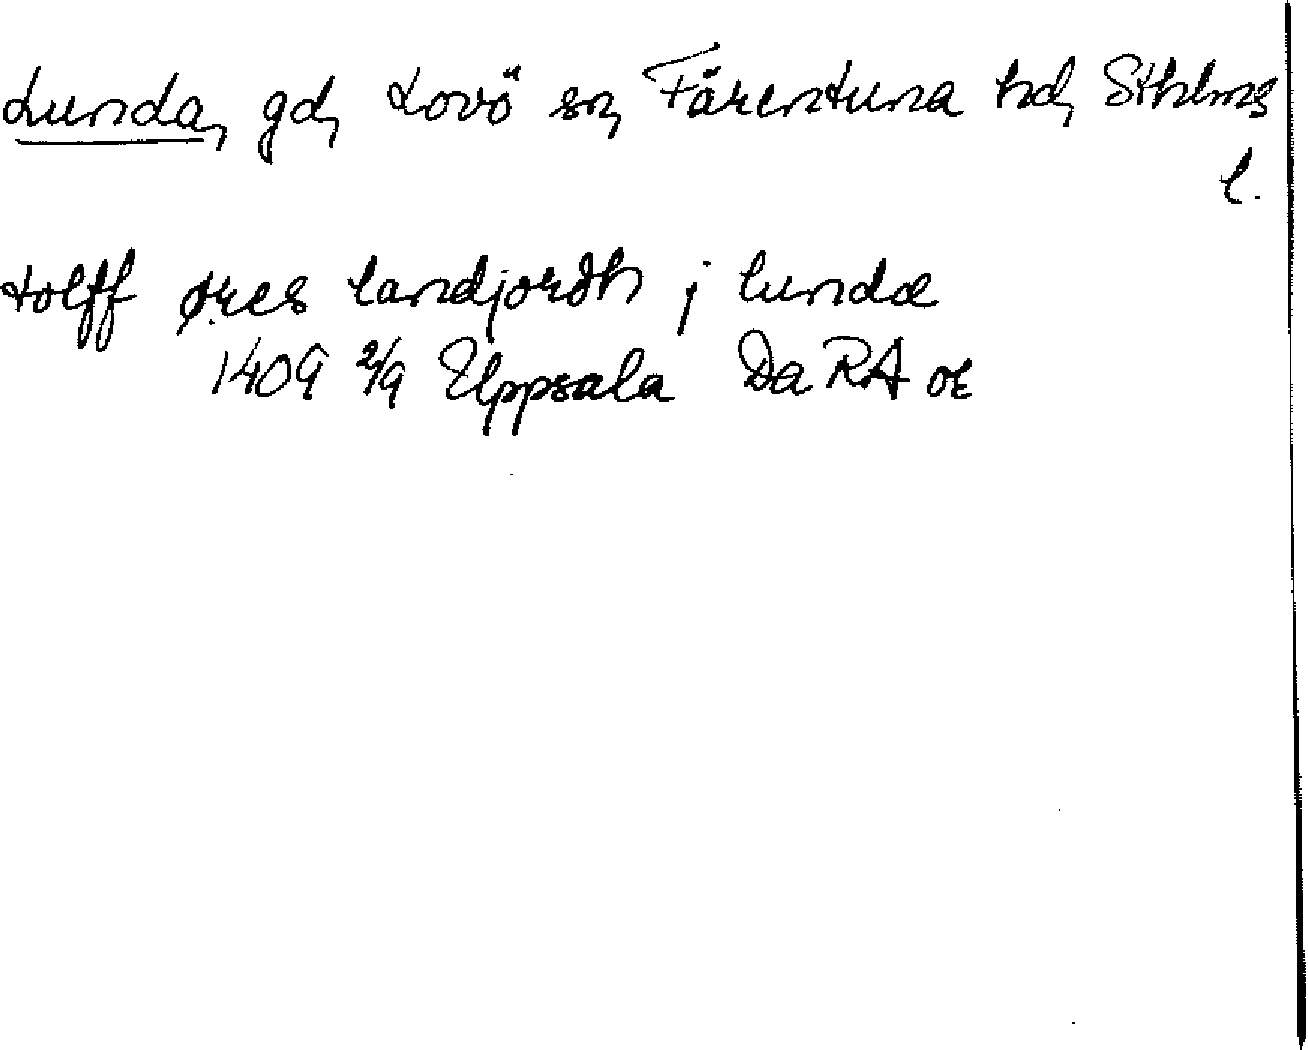 Lunda, gd, Lovö sn, Färentuna hd, Sthlms
l.
tolff øres landjordh j lunda
1409 2/9 Uppsala Da RA or